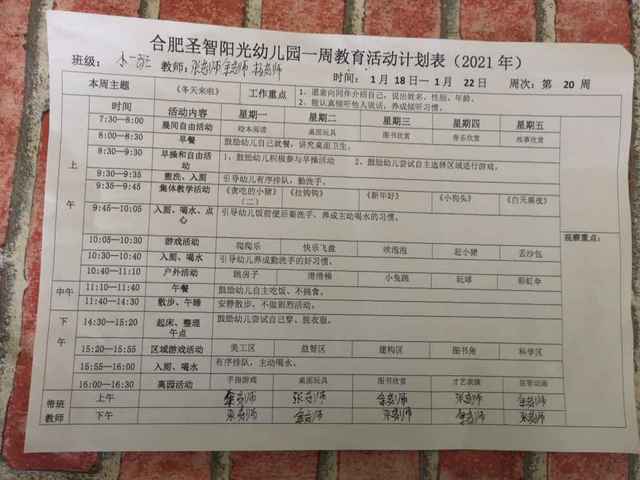 合肥圣智阳光幼儿园一周教育活动计划表（2021年）
班级： 小一班 教师：张老师
时间： 1月 18日— 1月 22日 周次：第 20 周
本周主题 《冬天来啦》 工作重点 1、愿意向同伴介绍自己，说出姓名、性别、年龄。
2、能认真倾听他人说话，养成倾听习惯。
时间 活动内容 星期一 星期二 星期三 星期四 星期五
上午
7:30—8:00 晨间自由活动 绘本阅读 桌面玩具 图书欣赏 音乐欣赏 故事欣赏
8:00—8:30 早餐 鼓励幼儿自己就餐，讲究桌面卫生。
8:30—9:30 早操和自由活动 1、鼓励幼儿积极参与早操活动 2、鼓励幼儿尝试自主选择区域进行游戏。
9:30—9:35 盥洗、入厕 引导幼儿有序排队，勤洗手。
9:35—9:45 集体教学活动 《贪吃的小猪》 《拉钩钩》（二） 《新年好》 《小狗头》 《白天黑夜》
9:45—10:05 入厕、喝水、点心 引导幼儿饭前便后要洗手，养成主动喝水的习惯。
观察重点：
10:05—10:30 游戏活动 抛抛乐 快乐飞盘 吹泡泡 赶小猪 丢沙包
10:30—10:40 入厕、喝水 引导幼儿养成勤洗手的好习惯。
10:40—11:10 户外活动 跳房子 滑滑梯 小兔跳 玩球 彩虹伞
中午
11:10—11:40 午餐 鼓励幼儿自主吃饭、不挑食。
11:40—14:30 散步、午睡 安静散步、不做剧烈活动。
下午
14:30—15:20 起床、整理午点 鼓励幼儿尝试自己穿、脱衣服。
15:20—15:55 区域游戏活动 美工区 益智区 建构区 图书角 科学区
15:55—16:00 入厕、喝水 有序排队，主动喝水。
16:00—16:30 离园活动 手指游戏 桌面玩具 图书欣赏 才艺表演 益智动画
带班教师
上午 余老师 张老师 余老师 张老师 余老师
下午 张老师 余老师 张老师 余老师 张老师